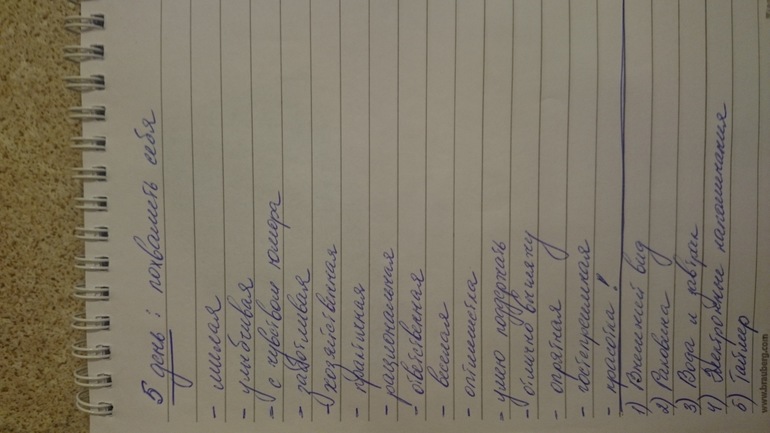 5 день: похвалить себя
- милая
- улыбчивая
- с чувством юмора
- заботливая
- хозяйственная
- практичная
- рациональная
- ответственная
- веселая
- оптимистка
- умею поддержать
- отлично выгляжу
- опрятная
- гостеприимная
- красотка!
1) Внешний вид
2) Раковина
3) Вода и завтрак
4) Электронные напоминания
5) Таймер
www.brauberg.com